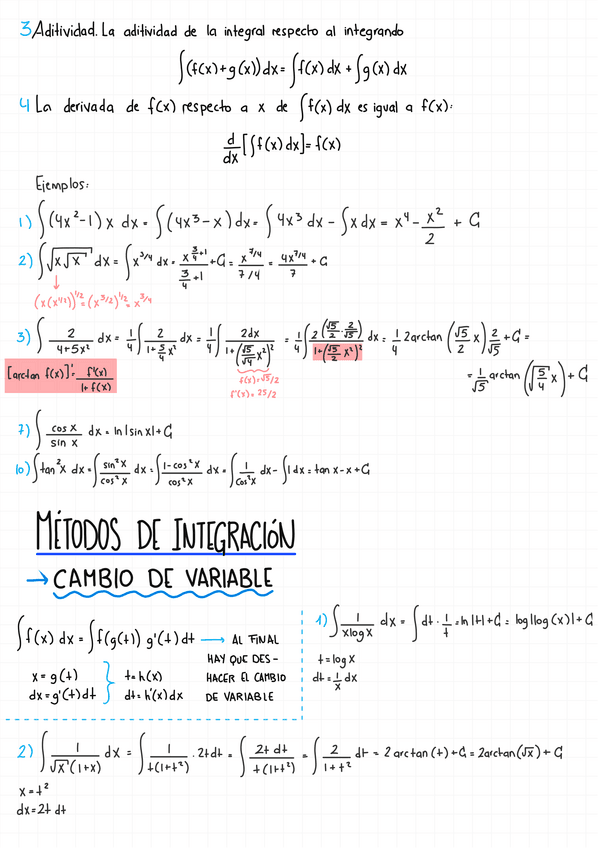 3 Aditividad. La aditividad de la integral respecto al integrando
∫(f(x)+g(x))dx = ∫f(x)dx + ∫g(x)dx
4 La derivada de f(x) respecto a x de ∫f(x) dx es igual a f(x):
d/dx [∫f(x)dx] = f(x)
Ejemplos:
1) ∫(4x²-1)x dx = ∫(4x³-x)dx = ∫4x³dx - ∫x dx = x⁴ - x²/2 + C
2) ∫√(x√x) dx = ∫x^(3/4) dx = x^(3/4+1)/(3/4+1) + C = x^(7/4)/(7/4) = 4x^(7/4)/7 + C
↓
(x(x^(1/2))^(1/2) = (x^(3/2))^(1/2) = x^(3/4)
3) ∫ 2/(4+5x²) dx = 1/4 ∫ 2/(1+5/4 x²) dx = 1/4 ∫ 2dx/(1+(√5/√4 x²)²) = 1/4 ∫ 2(√5/2 · 2/√5)/(1+(√5/2 x²)²) dx = 1/4 2arctan(√5/2 x) 2/√5 + C =
[arctan f(x)]' = f'(x)/(1+f(x))
f(x)=√5/2
f'(x)=25/2
= 1/√5 arctan(√(5/4) x) + C
7) ∫ cos x/sin x dx = ln|sin x| + C
10) ∫tan²x dx = ∫ sin²x/cos²x dx = ∫ (1-cos²x)/cos²x dx = ∫ 1/cos²x dx - ∫1dx = tan x - x + C
MÉTODOS DE INTEGRACIÓN
→ CAMBIO DE VARIABLE
∫f(x) dx = ∫f(g(t)) g'(t)dt → AL FINAL
HAY QUE DES-
x=g(t) } t=h(x) HACER EL CAMBIO
dx=g'(t)dt dt=h'(x)dx DE VARIABLE
1) ∫ 1/(x log x) dx = ∫dt · 1/t = ln|t| + C = log|log(x)| + C
t=log x
dt = 1/x dx
2) ∫ 1/(√x(1+x)) dx = ∫ 1/(t(1+t²)) · 2tdt = ∫ 2t dt/(t(1+t²)) = ∫ 2/(1+t²) dt = 2 arctan(t) + C = 2arctan(√x) + C
x=t²
dx=2t dt